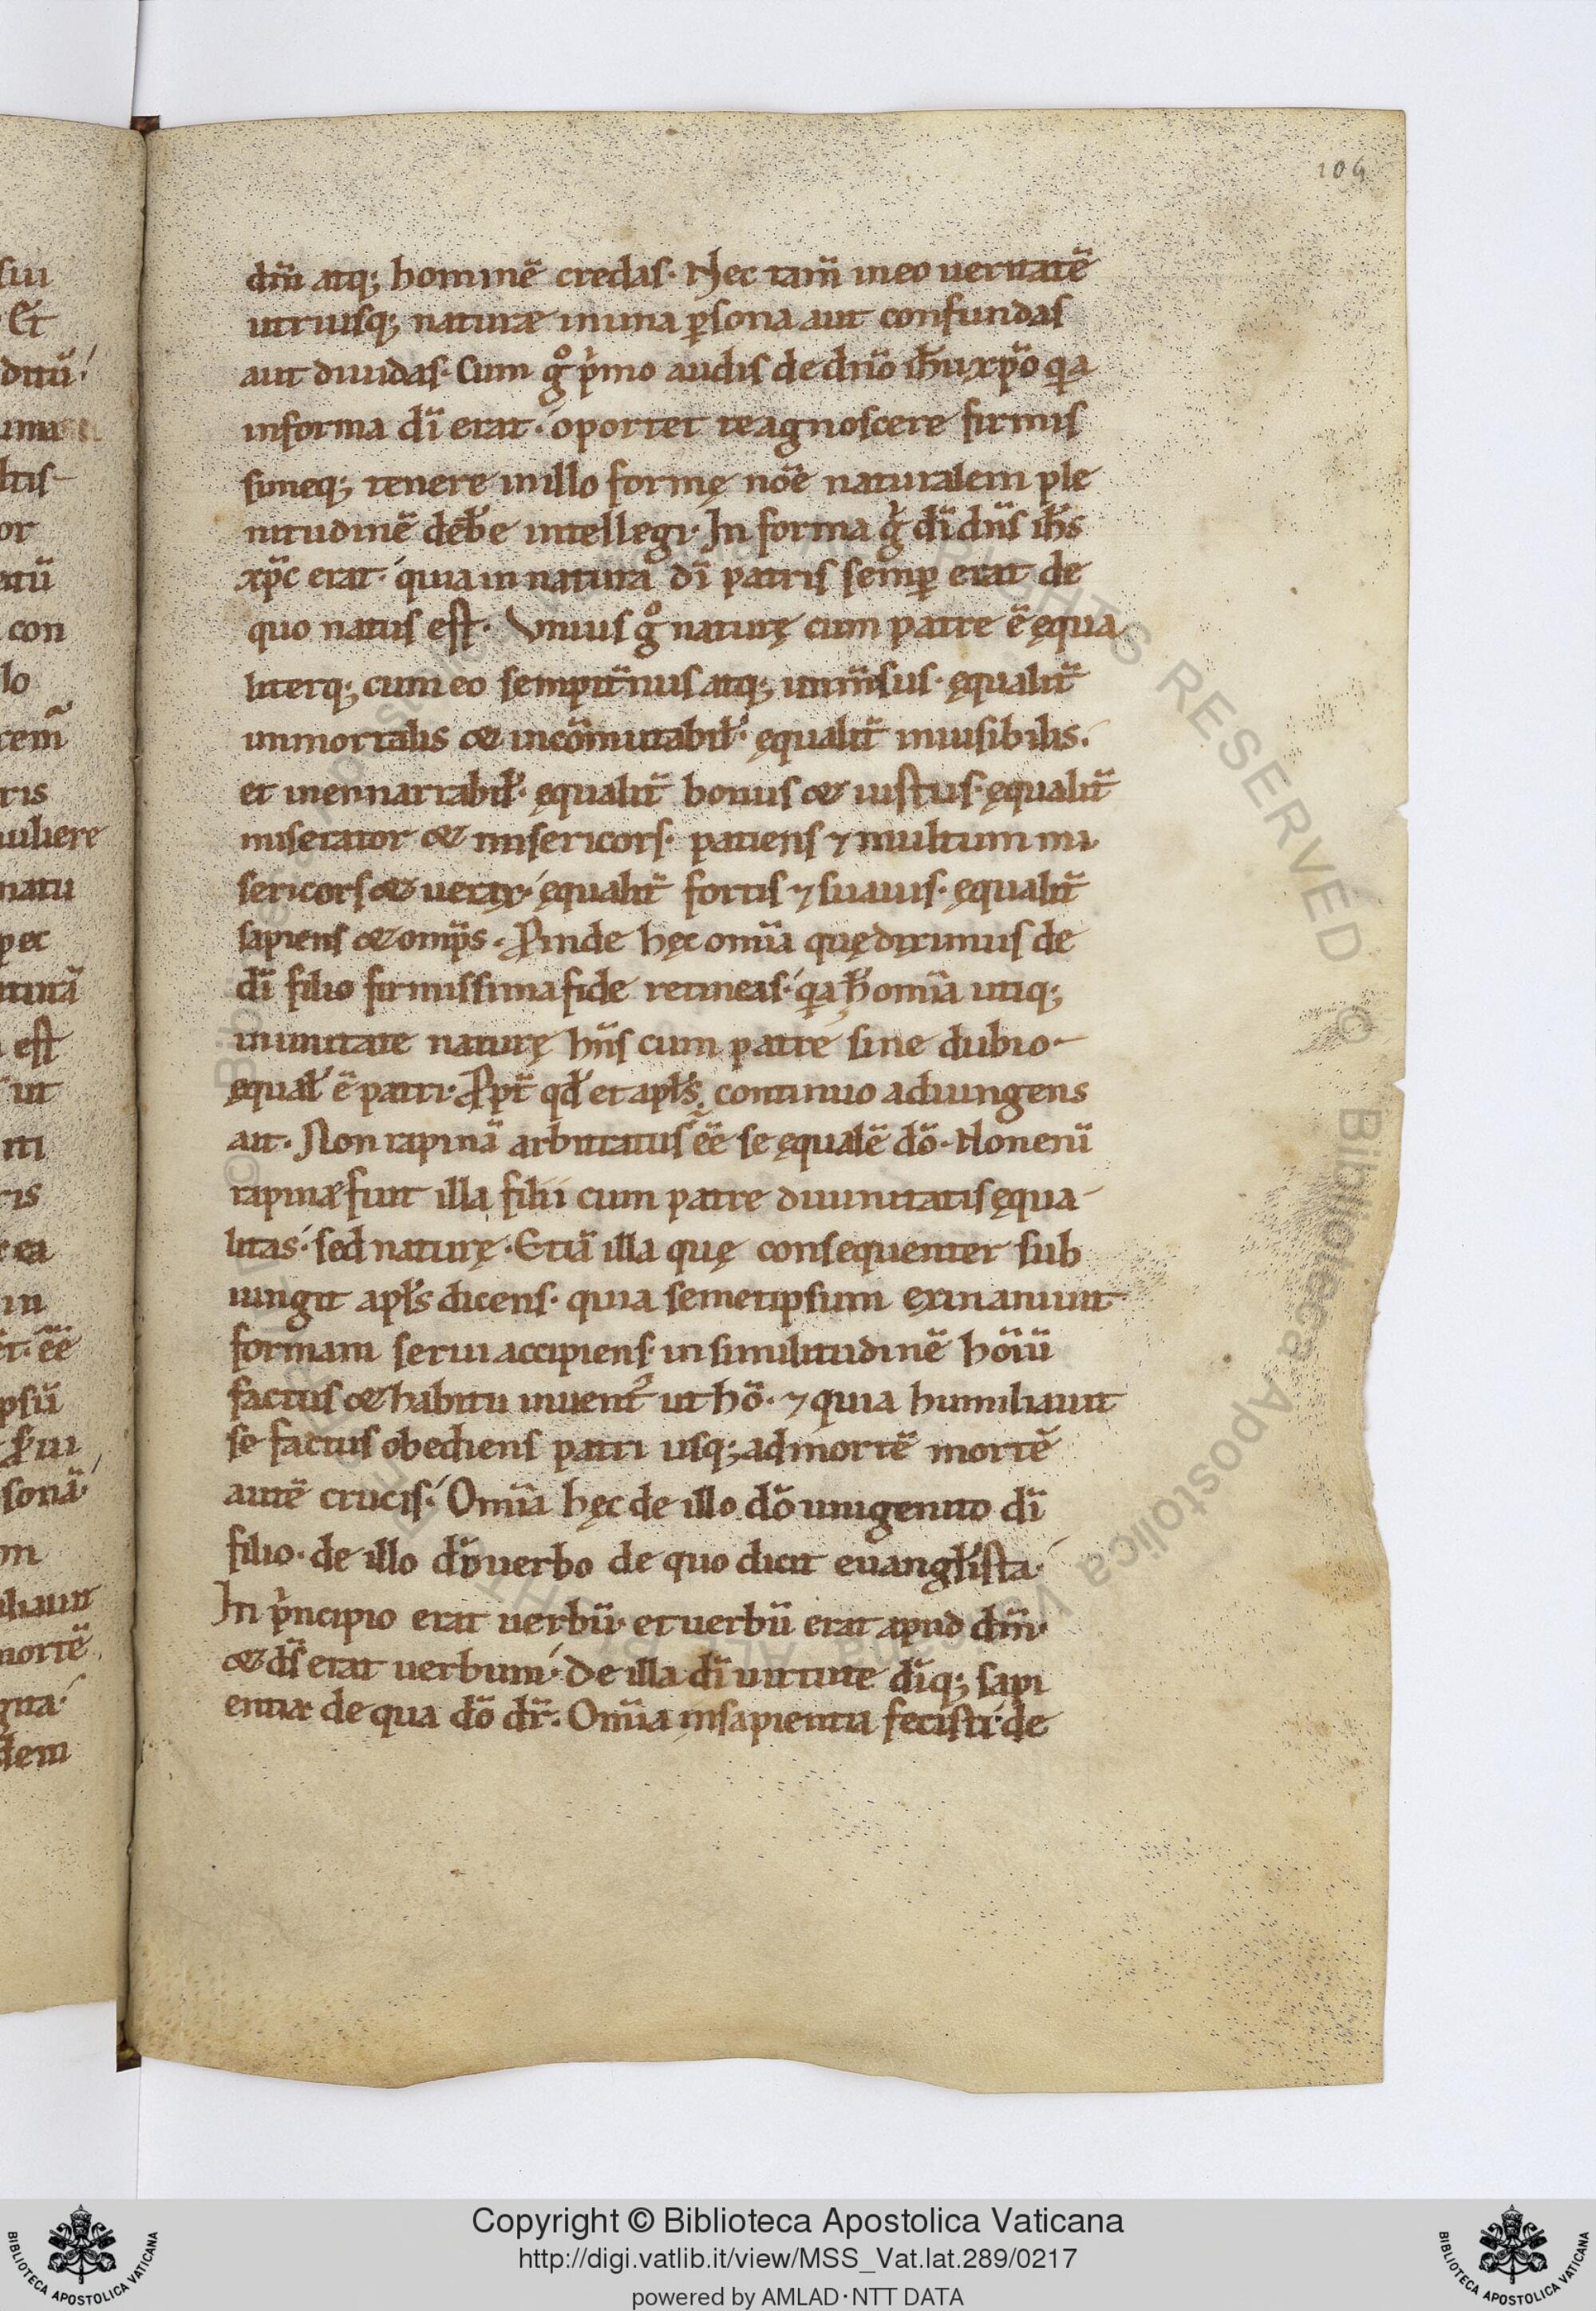 104
dm̄ atq; hominē credas· Nec tam̄ in eo ueritatē
utriusq; naturæ in una ꝑsona aut confundas
aut diuidas· Cum gͦ pͥmo audis de dn̄o ih̄u xp̄o qa
in forma dī erat· oportet te agnoscere firmis
simeq; tenere in illo formę noīe naturalem ple
nitudinē deb̄e intellegi· In forma gͥ dī dn̄s ih̄s
xp̄c erat· quia in natura dī patris semꝑ erat de
quo natus est· Vnius gͦ naturę cum patre ē ęqua
literq; cum eo sempit̄nus atq; inm̄sus· ęqualit̄
inmortalis & incōmutabil̄· ęqualit̄ inuisibilis·
et inennarrabil̄· ęqualit̄ bonus & iustus· ęqualit̄
miserator & misericors· patiens ⁊ multum mi
sericors & uerax· ęqualit̄ fortis ⁊ suauis· ęqualit̄
sapiens & omp̄s· Ꝓinde hęc om̄ia quę diximus de
dī filio firmissima fide retineas· qa h̄ om̄ia utiq;
in unitate naturę hn̄s cum patre sine dubio
ęqual̄ ē patri· Ꝓpt̄ qd̄ et apl̄s continuo adiungens
ait· Non rapinā arbitratus ēē se ęqualē dō· Non enī
rapinæ fuit illa filii cum patre diuinitatis ęqua
litas· sed naturę· Etiā illa quę consequenter sub
iungit apl̄s dicens· quia semetipsum exinaniuit
formam serui accipiens· in similitudinē hōiū
factus & habitu inuent᷒ ut hō· ⁊ quia humiliauit
se factus obediens patri usq; ad mortē mortē
autē crucis· Om̄ia hęc de illo dō unigenito dī
filio· de illo dō uerbo de quo dicit euangl̄ista·
In pͥncipio erat uerbū· et uerbū erat apud dm̄·
& ds̄ erat uerbum· De illa dī uirtute dīq; sapi
entia de qua dō dr̄· Om̄ia in sapientia fecisti· de
Copyright © Biblioteca Apostolica Vaticana
http://digi.vatlib.it/view/MSS_Vat.lat.289/0217
powered by AMLAD·NTT DATA